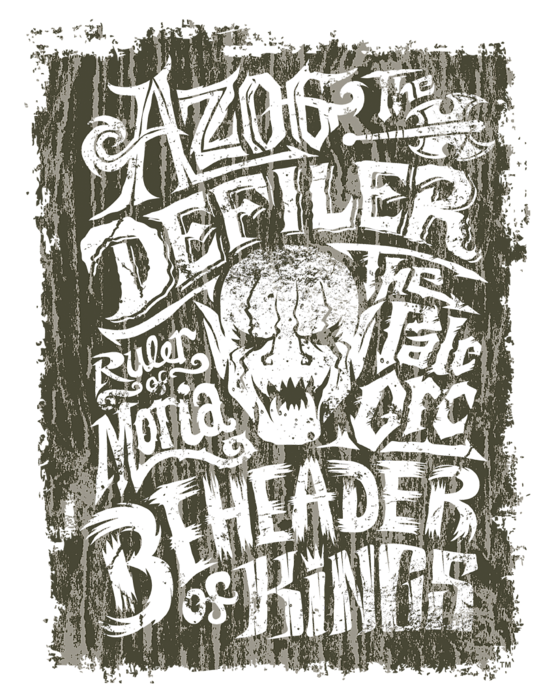 AZOG The
DEFILER
The
Pale
Orc
Ruler
of
Moria
BEHEADER
OF KiNGS
TM